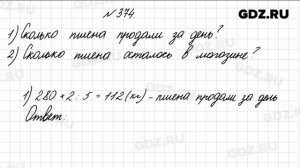 GDZ.RU
№ 374
1) Сколько пшена продали за день?
2) Сколько пшена осталось в магазине?
1) 280 * 2 : 5 = 112 (кг) - пшена продали за день
Ответ:
GDZ.RU